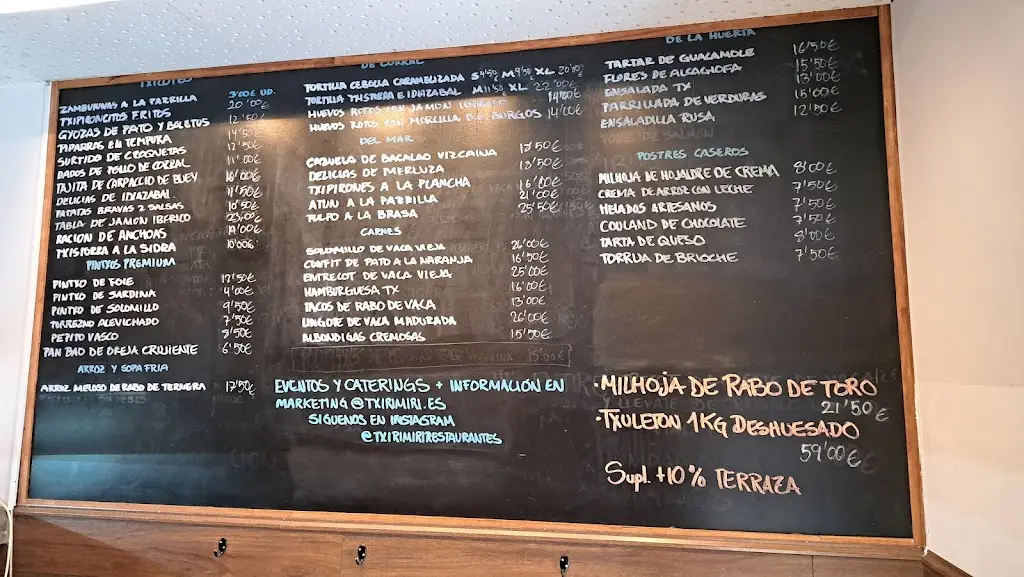 TXICOTEO
ZAMBURIÑAS A LA PARRILLA 3'00€ UD.
TXIPIRONCITOS FRITOS 20'00€
GYOZAS DE PATO Y BOLETUS 12'50€
PIPARRAS EN TEMPURA 14'50€
SURTIDO DE CROQUETAS 12'50€
DADOS DE POLLO DE CORRAL 11'00€
TAJITA DE CARPACCIO DE BUEY 16'00€
DELICIAS DE IDIAZABAL 11'50€
PATATAS BRAVAS 2 SALSAS 10'50€
TABLA DE JAMON IBERICO 23'00€
RACION DE ANCHOAS 19'00€
TXISTORRA A LA SIDRA 10'00€
PINTXOS PREMIUM
PINTXO DE FOIE 17'50€
PINTXO DE SARDINA 4'00€
PINTXO DE SOLOMILLO 9'50€
TORREZNO ALEVICHADO 7'50€
PEPITO VASCO 8'50€
PAN BAO DE OREJA CRUJIENTE 6'50€
ARROZ Y SOPA FRIA
ARROZ MELOSO DE RABO DE TERNERA 17'50€
DE CORRAL
TORTILLA CEBOLLA CARAMELIZADA S 4'50€ M 9'50€ XL 20'50€
TORTILLA TXISTORRA E IDIAZABAL M 11'50 XL 22'00€
HUEVOS ROTOS CON JAMON IBERICO 14'00€
HUEVOS ROTOS CON MORCILLA DE BURGOS 14'00€
DEL MAR
CAZUELA DE BACALAO VIZCAINA 17'50€
DELICIAS DE MERLUZA 13'50€
TXIPIRONES A LA PLANCHA 16'00€
ATUN A LA PARRILLA 21'00€
PULPO A LA BRASA 25'50€
CARNES
SOLOMILLO DE VACA VIEJA 26'00€
CONFIT DE PATO A LA NARANJA 16'50€
ENTRECOT DE VACA VIEJA 25'00€
HAMBURGUESA TX 16'00€
TACOS DE RABO DE VACA 13'00€
LINGOTE DE VACA MADURADA 26'00€
ALBONDIGAS CREMOSAS 15'50€
EVENTOS Y CATERINGS + INFORMACIÓN EN
MARKETING@TXIRIMIRI.ES
SIGUENOS EN INSTAGRAM
@TXIRIMIRIRESTAURANTES
DE LA HUERTA
TARTAR DE GUACAMOLE 16'50€
FLORES DE ALCACHOFA 15'50€
ENSALADA TX 13'00€
PARRILLADA DE VERDURAS 15'00€
ENSALADILLA RUSA 12'50€
POSTRES CASEROS
MILHOJA DE HOJALDRE DE CREMA 8'00€
CREMA DE ARROZ CON LECHE 7'50€
HELADOS ARTESANOS 7'50€
COULAND DE CHOCOLATE 7'50€
TARTA DE QUESO 8'00€
TORRIJA DE BRIOCHE 7'50€
·MILHOJA DE RABO DE TORO
21'50€
·TXULETON 1KG DESHUESADO
59'00€
Supl. +10% TERRAZA